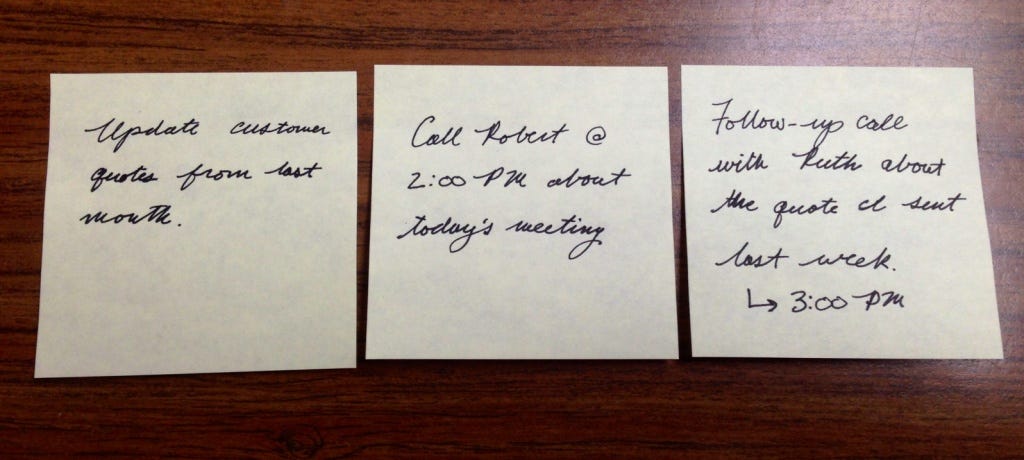 Update customer
quotes from last
month.
Call Robert @
2:00 PM about
today's meeting
Follow-up call
with Ruth about
the quote I sent
last week.
↳ 3:00 PM